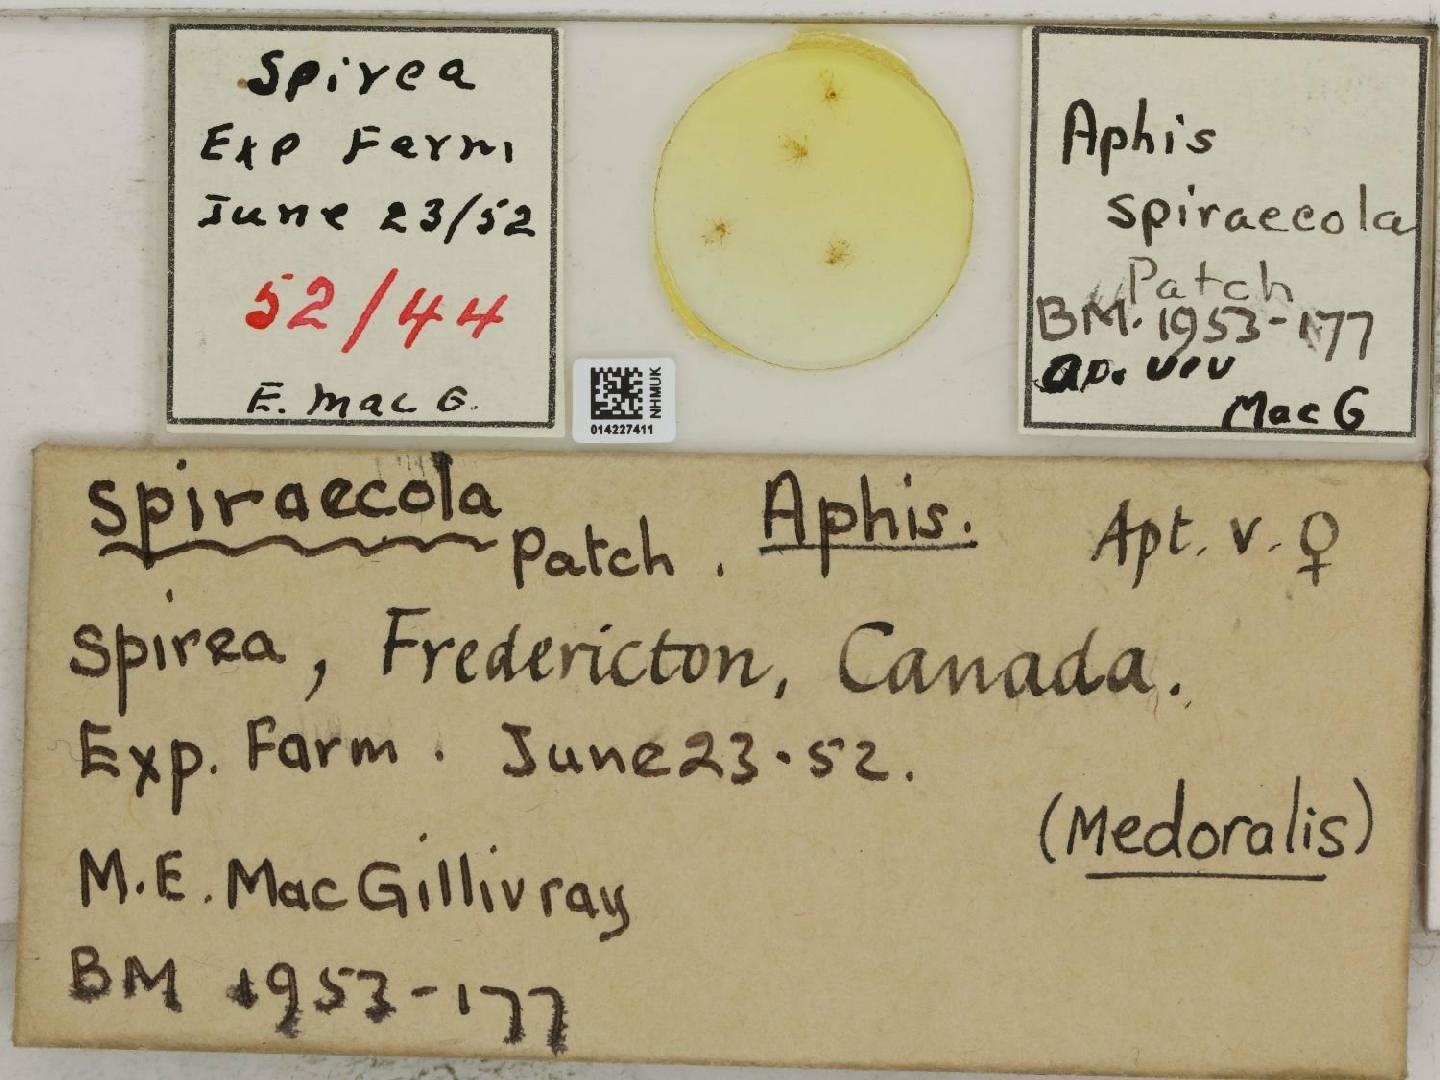 Spirea
Exp Farm
June 23/52
52/44
E. Mac G.
NHMUK
014227411
Aphis
spiraecola
Patch
BM. 1953-177
ap. viv
Mac G
spiraecola Patch. Aphis. Apt. v. ♀
Spirea, Fredericton, Canada.
Exp. Farm. June 23.52.
(Medoralis)
M.E. MacGillivray
BM 1953-177